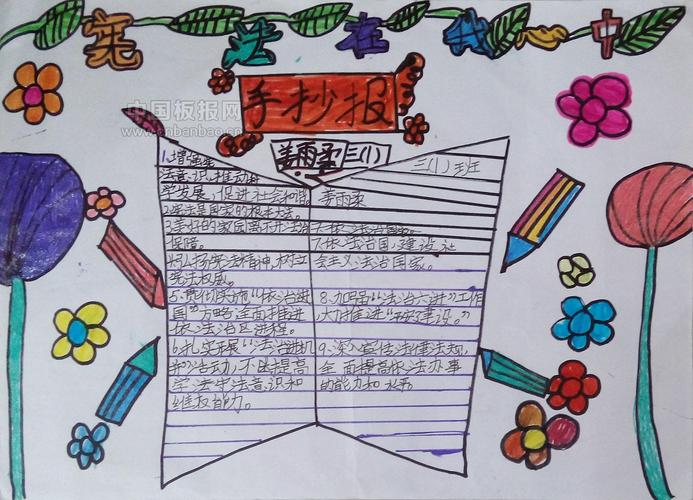 宪法在我心中
手抄报
中国板报网
www.cnbanbao.cn
姜雨柔三(1)
三(1)班
姜雨柔
1.增强宪
法意识,推动科
学发展,促进社会和谐
2.宪法是国家的根本大法。
3.美好的家园离不开法治
保障。
4.弘扬宪法精神,树立
宪法权威。
5.贯彻实施“依法治
国”方略,全面推进
依法治区进程。
6.扎实开展“法治进机
关”活动,不断提高
学法守法意识和
维权能力。
7.依法治国,建设社
会主义法治国家。
8.加强“法治六进”工作
大力推进“建设。”
9.深入宣传法律法规,
全面提高依法办事
的能力和水平